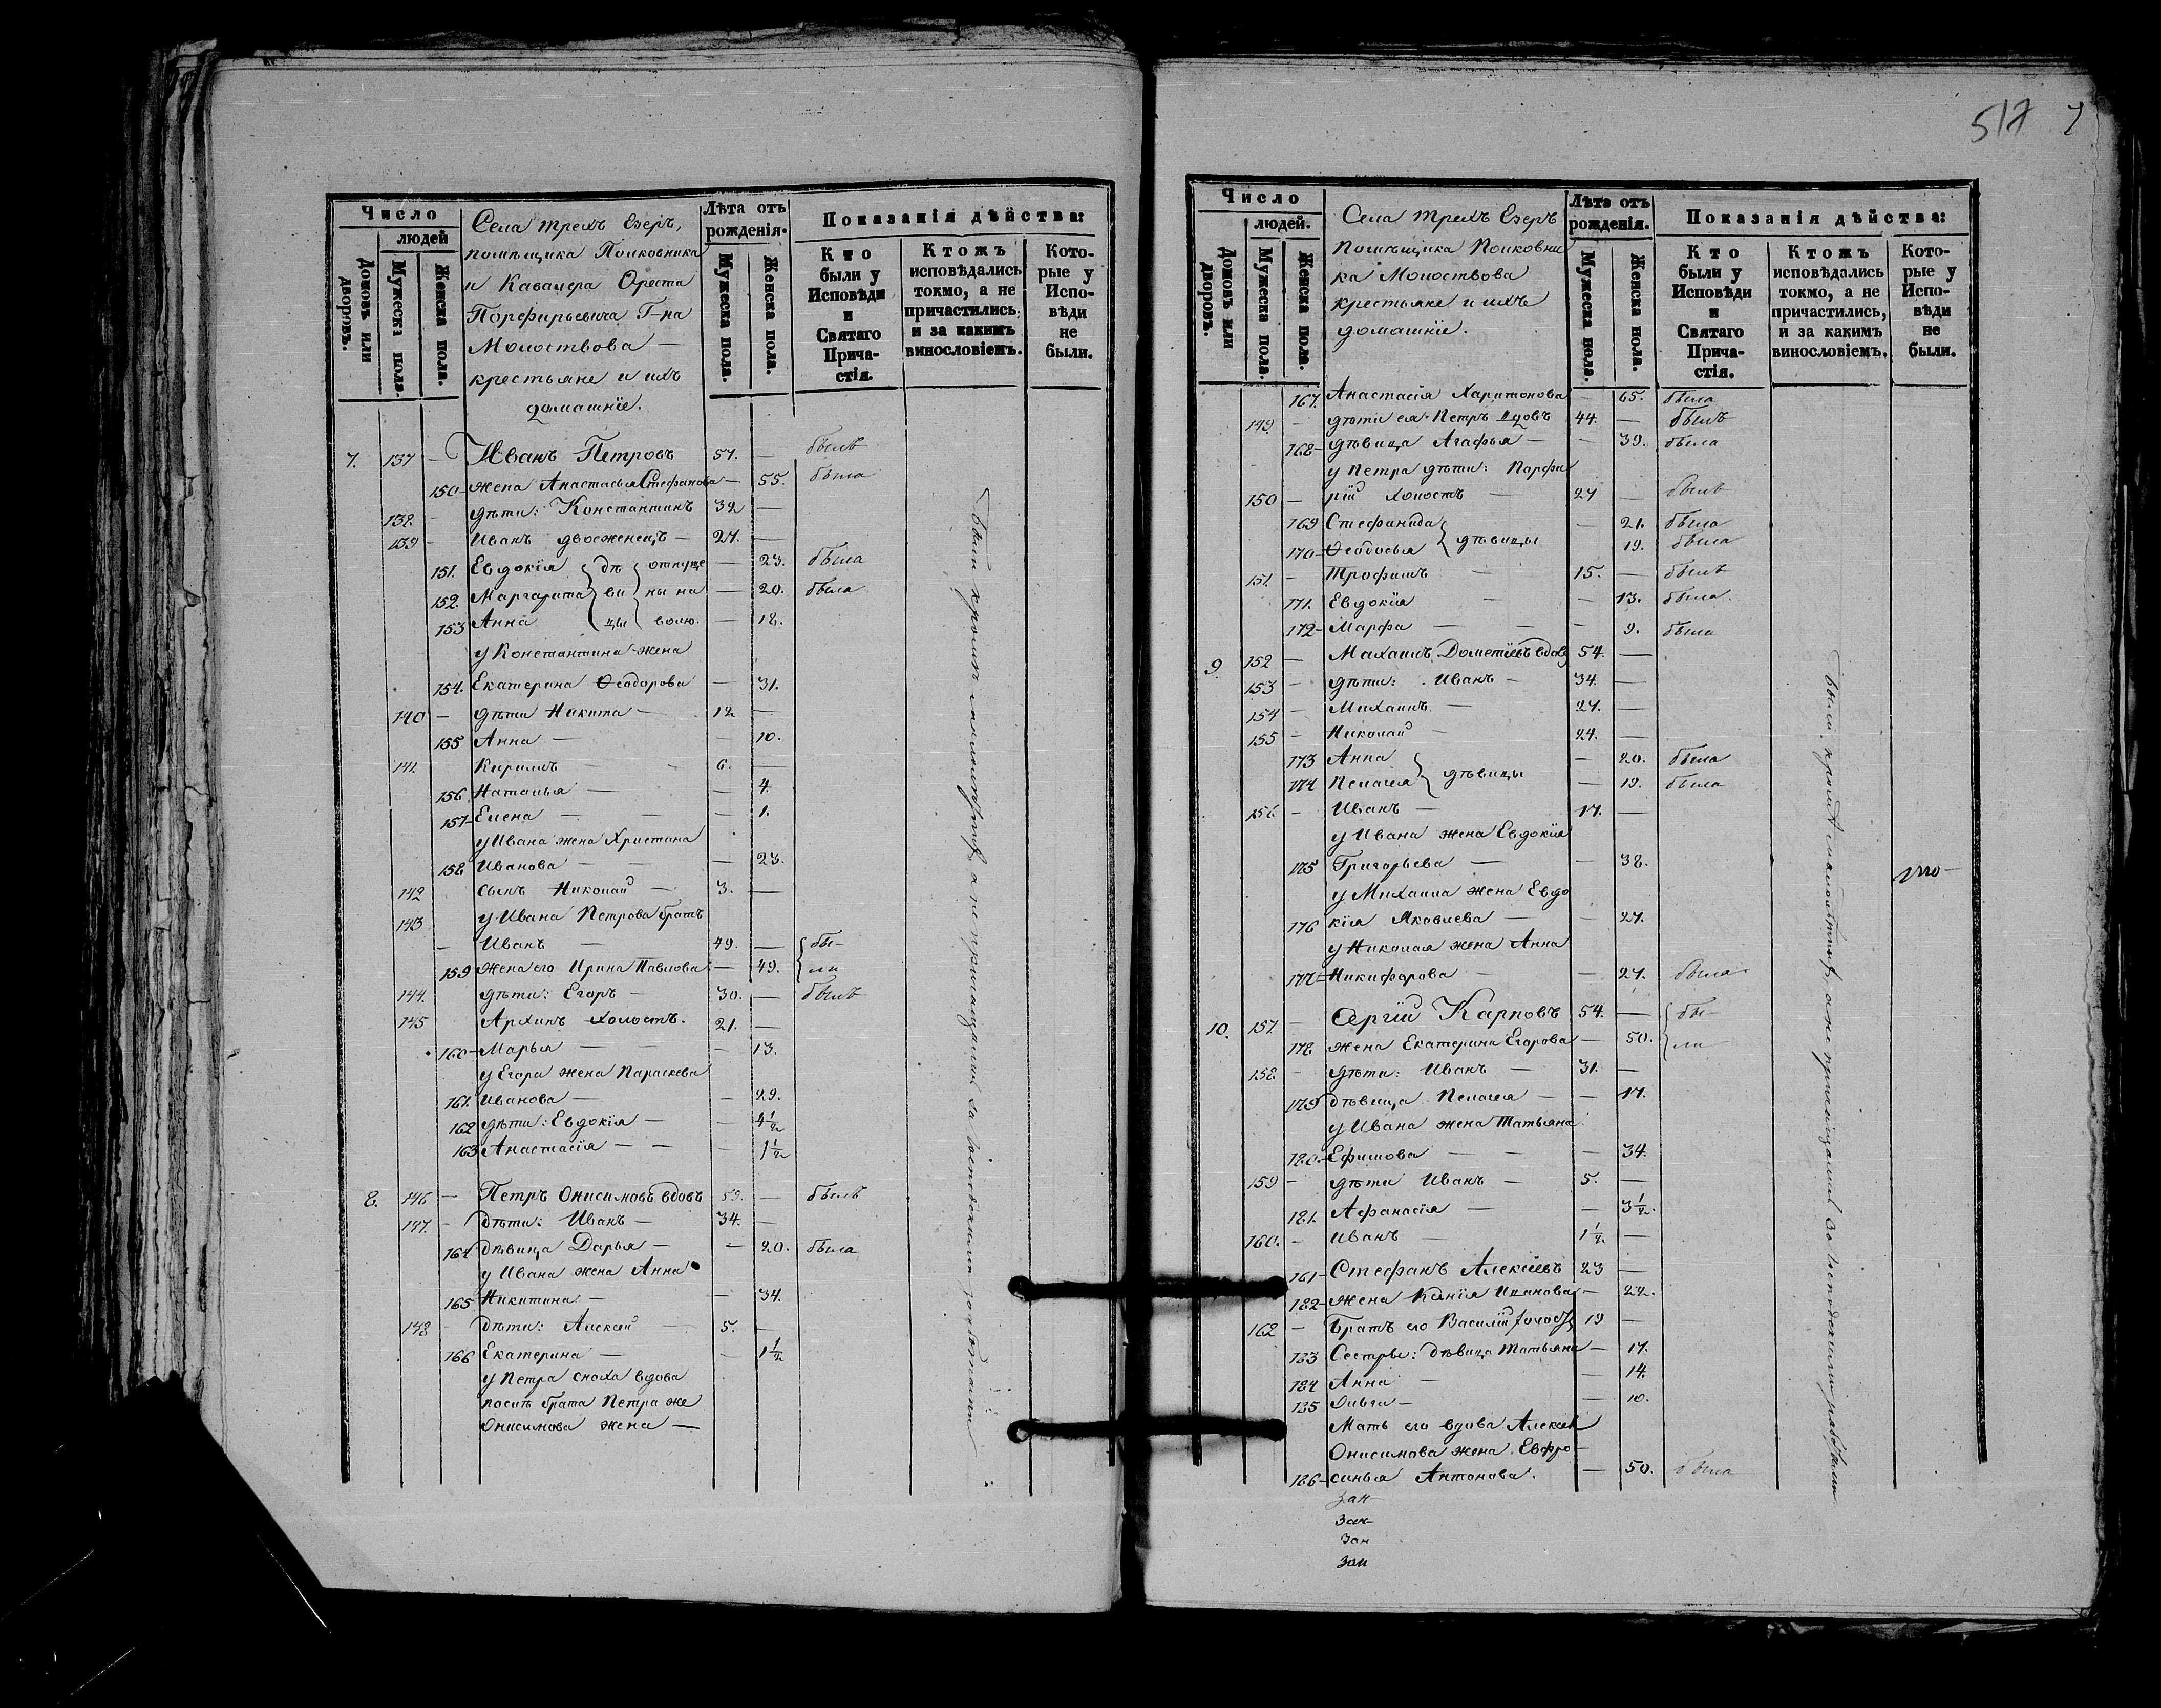 Число
людей
Домовъ или дворовъ.
Мужеска пола.
Женска пола.
Села трехъ Озеръ,
помѣщика Полковника
и Кавалера Ореста
Порфирьевича Г-на
Молоствова —
крестьяне и ихъ
домашніе.
Лѣта отъ рожденія.
Мужеска пола.
Женска пола.
Показанія дѣйства:
Кто были у Исповѣди и Святаго Причастія.
Ктожъ исповѣдались токмо, а не причастились, и за какимъ винословіемъ.
Которые у Исповѣди не были.
7. 137 — Иванъ Петровъ 57. — былъ
150 — жена Анастасья Стефанова — 55. была
138. — дѣти: Константинъ 32 —
139 — Иванъ двоеженецъ — 27. —
151. Евдокія дѣ отпуще — 23. была
152. Маргарита ви ны на — 20. была
153 Анна цы волю. — 18.
у Константина жена
154. Екатерина Ѳеодорова — 31.
140 — дѣти Никита — 12 —
155 Анна — — 10.
141. Кирилъ — 6. —
156 Наталья — — 4.
157 — Елена — — 1.
у Ивана жена Христина
158 Иванова — — 23.
142 сынъ Николай — 3. —
143 у Ивана Петрова братъ
— Иванъ — 49. — бы-
159 жена его Ирина Павлова — 49. ли
144. дѣти: Егоръ — 30. — былъ
145 Архипъ холостъ. 21. —
160 — Марья — — 13.
у Егора жена Параскева
161. Иванова — — 29.
162 дѣти: Евдокія — — 4 1/2
163 Анастасія — — 1 1/2
8. 146 — Петръ Онисимовъ вдовъ 59. — былъ
147. — дѣти: Иванъ — 34. —
164 дѣвица Дарья — — 20. была
у Ивана жена Анна
165 Никитина — — 34.
148 — дѣти: Алексѣй — 5. —
166 Екатерина — — 1 1/2
у Петра сноха вдова
брата Петра же
Онисимова жена —
были кромѣ а не за
517
Число
людей.
Домовъ или дворовъ.
Мужеска пола.
Женска пола.
Села трехъ Озеръ
помѣщика Полковни
ка Молоствова
крестьяне и ихъ
домашніе.
Лѣта отъ рожденія.
Мужеска пола.
Женска пола.
Показанія дѣйства:
Кто были у Исповѣди и Святаго Причастія.
Ктожъ исповѣдались токмо, а не причастились, и за какимъ винословіемъ.
Которые у Исповѣди не были.
167. Анастасія Харитонова — 65. была
149. — дѣти ея Петръ вдовъ 44. — былъ
168 — дѣвица Агафья — — 39. была
у Петра дѣти: Парфи
150 — рій холостъ — 24 — былъ
169 Стефанида — 21. была
170 — Ѳеодосья дѣвицы 19. была
151. — Трофимъ — 15. — былъ
171. Евдокія — — 13. была
172 — Марфа — — 9. была
9. 152 — Михаилъ Дометіевъ вдов 54. —
153 — дѣти: Иванъ — 34. —
154 — Михаилъ — 27. —
155 — Николай — 24. —
173 Анна — 20. была
174 Пелагея дѣвицы — 19. была
156. — Иванъ — 17. —
у Ивана жена Евдокія
175 Григорьева — — 38.
у Михаила жена Евдо
176 кія Яковлева — — 27.
у Николая жена Анна
177 — Никифорова — — 27. была
10. 157. — Сергій Карповъ 54. — бы-
178 жена Екатерина Егорова — 50. ли
158. — дѣти: Иванъ — 31. —
179 дѣвица Пелагея — — 17.
у Ивана жена Татьяна
180. — Ефимова — — 34.
159 — дѣти Иванъ — 5. —
181. Афанасія — — 3 1/2.
160. — Иванъ — 1 1/2. —
161 — Стефанъ Алексѣевъ 23 —
182 — жена Ксенія Иванова — 22.
162 — Братъ его Василій 19 —
183 Сестры: дѣвица Татьяна — 17.
184 Анна — — 14.
185 Ольга — — 10.
Мать его вдова Алексѣя
Онисимова жена Евфро-
186 — синья Антонова. — 50. была
были кромѣ а не
зан
зан
зан
зан